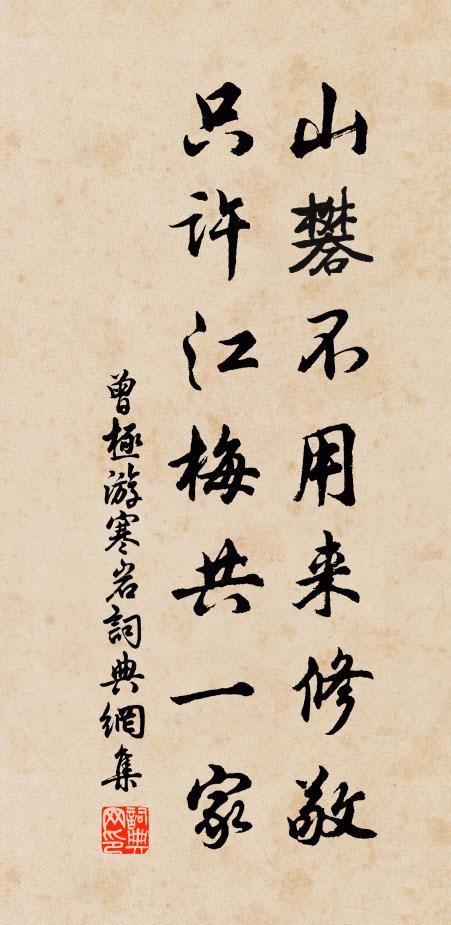 山礬不用来修敬
只許江梅共一家
曾極游寒岩詞典網集
詞典网印